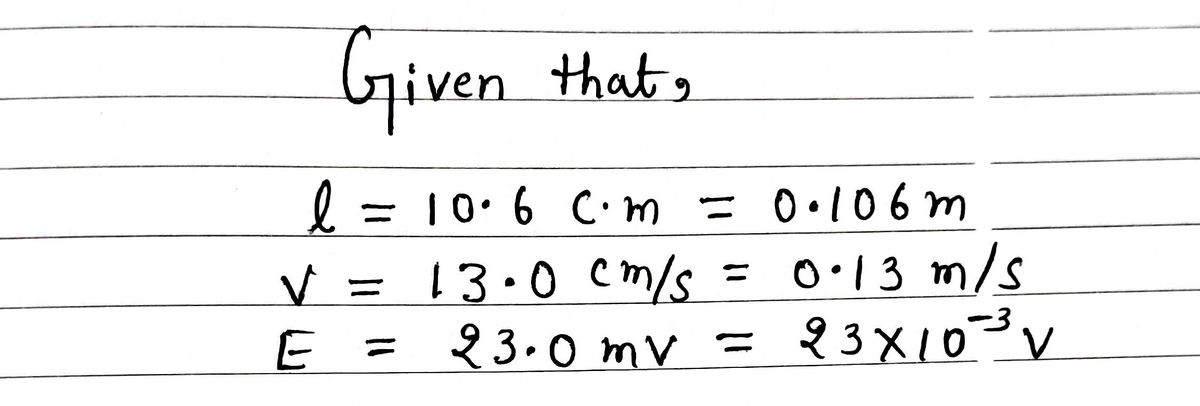 Given that,
l = 10.6 c.m = 0.106 m
v = 13.0 cm/s = 0.13 m/s
E = 23.0 mv = 23×10⁻³ v